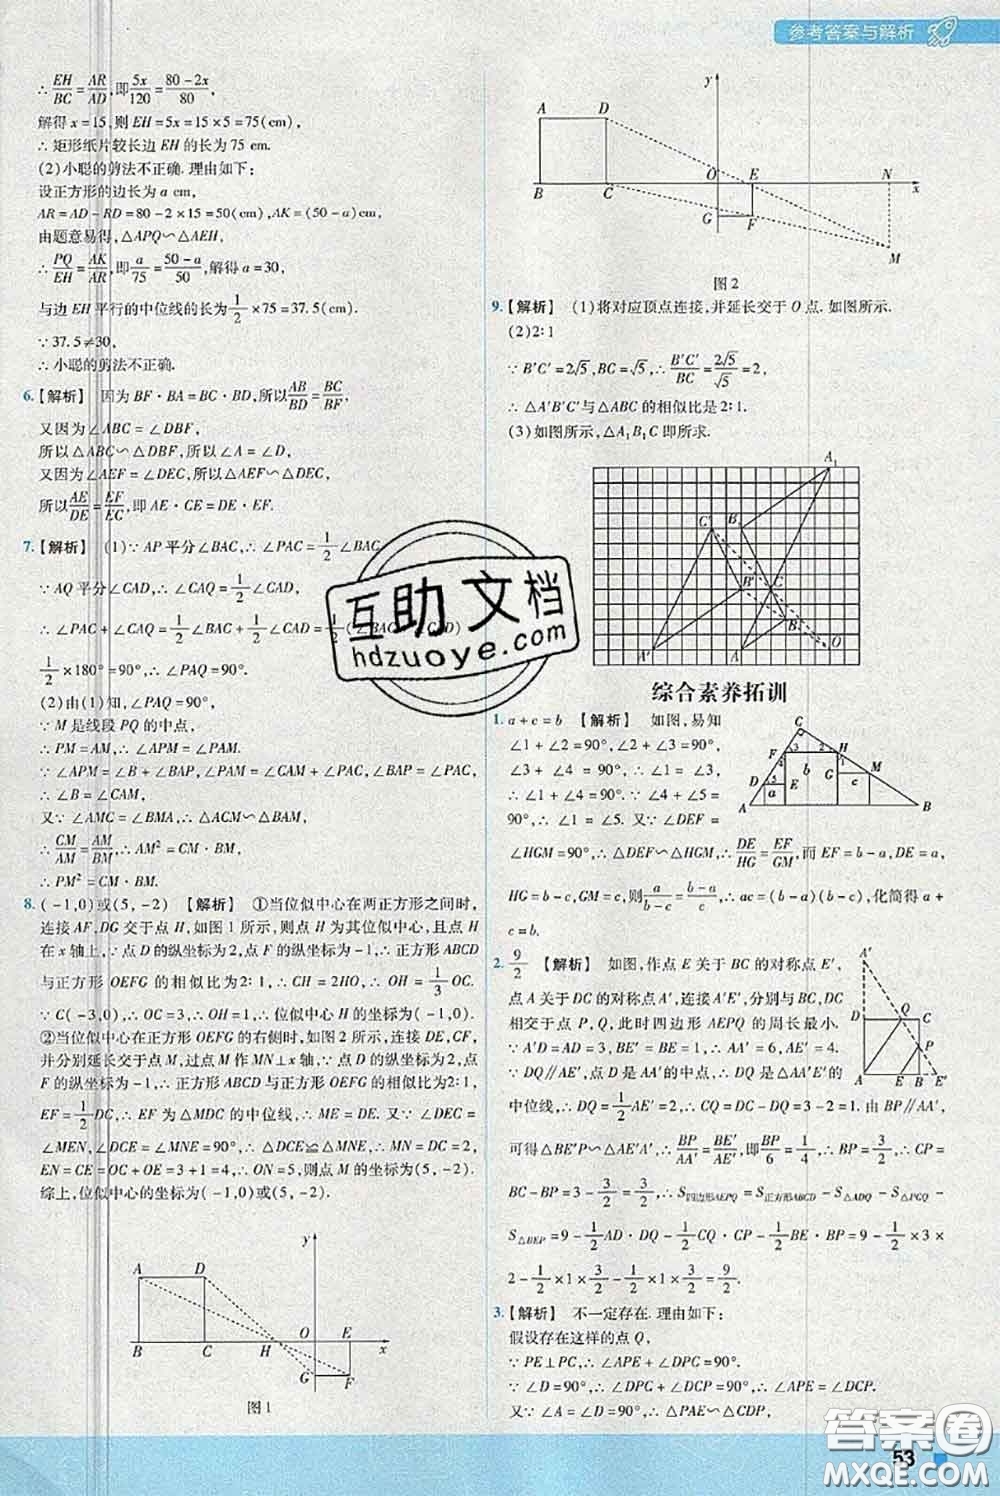 参考答案与解析
∴ EH/BC = AR/AD, 即 5x/120 = (80-2x)/80,
解得 x=15, 则 EH=5x=15×5=75(cm),
∴ 矩形纸片较长边 EH 的长为 75 cm.
(2)小聪的剪法不正确. 理由如下:
设正方形的边长为 a cm,
AR=AD-RD=80-2×15=50(cm), AK=(50-a)cm,
由题意易得, △APQ∽△AEH,
∴ PQ/EH = AK/AR, 即 a/75 = (50-a)/50, 解得 a=30,
与边 EH 平行的中位线的长为 1/2 ×75=37.5(cm).
∵ 37.5≠30,
∴ 小聪的剪法不正确.
6.【解析】 因为 BF·BA=BC·BD, 所以 AB/BD = BC/BF,
又因为∠ABC=∠DBF,
所以△ABC∽△DBF, 所以∠A=∠D.
又因为∠AEF=∠DEC, 所以△AEF∽△DEC,
所以 AE/DE = EF/EC, 即 AE·CE=DE·EF.
7.【解析】 (1)∵ AP 平分∠BAC, ∴ ∠PAC= 1/2 ∠BAC.
∵ AQ 平分∠CAD, ∴ ∠CAQ= 1/2 ∠CAD,
∴ ∠PAC+∠CAQ= 1/2 ∠BAC+ 1/2 ∠CAD= 1/2 (∠BAC+∠CAD)=
1/2 ×180°=90°, ∴ ∠PAQ=90°.
(2)由(1)知, ∠PAQ=90°,
∵ M 是线段 PQ 的中点,
∴ PM=AM, ∴ ∠APM=∠PAM.
∵ ∠APM=∠B+∠BAP, ∠PAM=∠CAM+∠PAC, ∠BAP=∠PAC,
∴ ∠B=∠CAM,
又∵ ∠AMC=∠BMA, ∴ △ACM∽△BAM,
∴ CM/AM = AM/BM, ∴ AM²=CM·BM,
∴ PM²=CM·BM.
8. (-1,0)或(5,-2) 【解析】 ①当位似中心在两正方形之间时,
连接 AF, DG 交于点 H, 如图 1 所示, 则点 H 为其位似中心, 且点 H
在 x 轴上, ∵ 点 D 的纵坐标为 2, 点 F 的纵坐标为-1, ∴ 正方形 ABCD
与正方形 OEFG 的相似比为 2:1, ∴ CH=2HO, ∴ OH= 1/3 OC.
∵ C(-3,0), ∴ OC=3, ∴ OH=1, ∴ 位似中心 H 的坐标为(-1,0).
②当位似中心在正方形 OEFG 的右侧时, 如图 2 所示, 连接 DE, CF,
并分别延长交于点 M, 过点 M 作 MN⊥x 轴, ∵ 点 D 的纵坐标为 2, 点
F 的纵坐标为-1, ∴ 正方形 ABCD 与正方形 OEFG 的相似比为 2:1,
EF= 1/2 DC, ∴ EF 为△MDC 的中位线, ∴ ME=DE. 又∵ ∠DEC
=∠MEN, ∠DCE=∠MNE=90°, ∴ △DCE≌△MNE, ∴ MN=DC=2,
EN=CE=OC+OE=3+1=4, ∴ ON=5, 则点 M 的坐标为(5,-2).
综上, 位似中心的坐标为(-1,0)或(5,-2).
y
A D
O E
B C H x
G F
图 1
y
A D
O E N
B C x
G F
M
图 2
9.【解析】 (1)将对应顶点连接, 并延长交于 O 点. 如图所示.
(2)2:1
∵ B'C'=2√5, BC=√5, ∴ B'C'/BC = 2√5/√5 =2,
∴ △A'B'C'与△ABC 的相似比是 2:1.
(3)如图所示, △A₁B₁C 即所求.
A₁
C' B₁
B' C
B
A' A O
综合素养拓训
1. a+c=b 【解析】 如图, 易知
∠1+∠2=90°, ∠2+∠3=90°,
∴ ∠1=∠3. ∵ ∠3+∠4=∠4+∠5=
90°, ∴ ∠1=∠5. 又∵ ∠DEF=
∠HGM=90°, ∴ △DEF∽△HGM, ∴ DE/HG = EF/GM, 而 EF=b-a, DE=a,
HG=b-c, GM=c, 则 a/(b-c) = (b-a)/c, ∴ ac=(b-c)(b-a), 化简得 a+
c=b.
C
F 3 2 H
4 1
D 5 E b G M
a c
A B
2. 9/2 【解析】 如图, 作点 E 关于 BC 的对称点 E',
点 A 关于 DC 的对称点 A', 连接 A'E', 分别与 BC, DC
相交于点 P, Q, 此时四边形 AEPQ 的周长最小.
∵ A'D=AD=3, BE'=BE=1, ∴ AA'=6, AE'=4.
∵ DQ∥AE', 点 D 是 AA'的中点, ∴ DQ 是△AA'E'的
中位线, ∴ DQ= 1/2 AE'=2, ∴ CQ=DC-DQ=3-2=1. 由 BP∥AA',
可得△BE'P∽△AE'A', ∴ BP/AA' = BE'/AE', 即 BP/6 = 1/4, ∴ BP= 3/2, ∴ CP=
BC-BP=3- 3/2 = 3/2, ∴ S四边形AEPQ=S正方形ABCD-S△ADQ-S△PCQ-
S△BEP=9- 1/2 AD·DQ- 1/2 CQ·CP- 1/2 BE·BP=9- 1/2 ×3×
2- 1/2 ×1× 3/2 - 1/2 ×1× 3/2 = 9/2.
A'
D Q C
P
A E B E'
3.【解析】 不一定存在. 理由如下:
假设存在这样的点 Q,
∵ PE⊥PC, ∴ ∠APE+∠DPC=90°,
∵ ∠D=90°, ∴ ∠DPC+∠DCP=90°, ∴ ∠APE=∠DCP.
又∵ ∠A=∠D=90°, ∴ △PAE∽△CDP,
互助文档
hdzuoye.com
答案圈
MXQE.COM
53